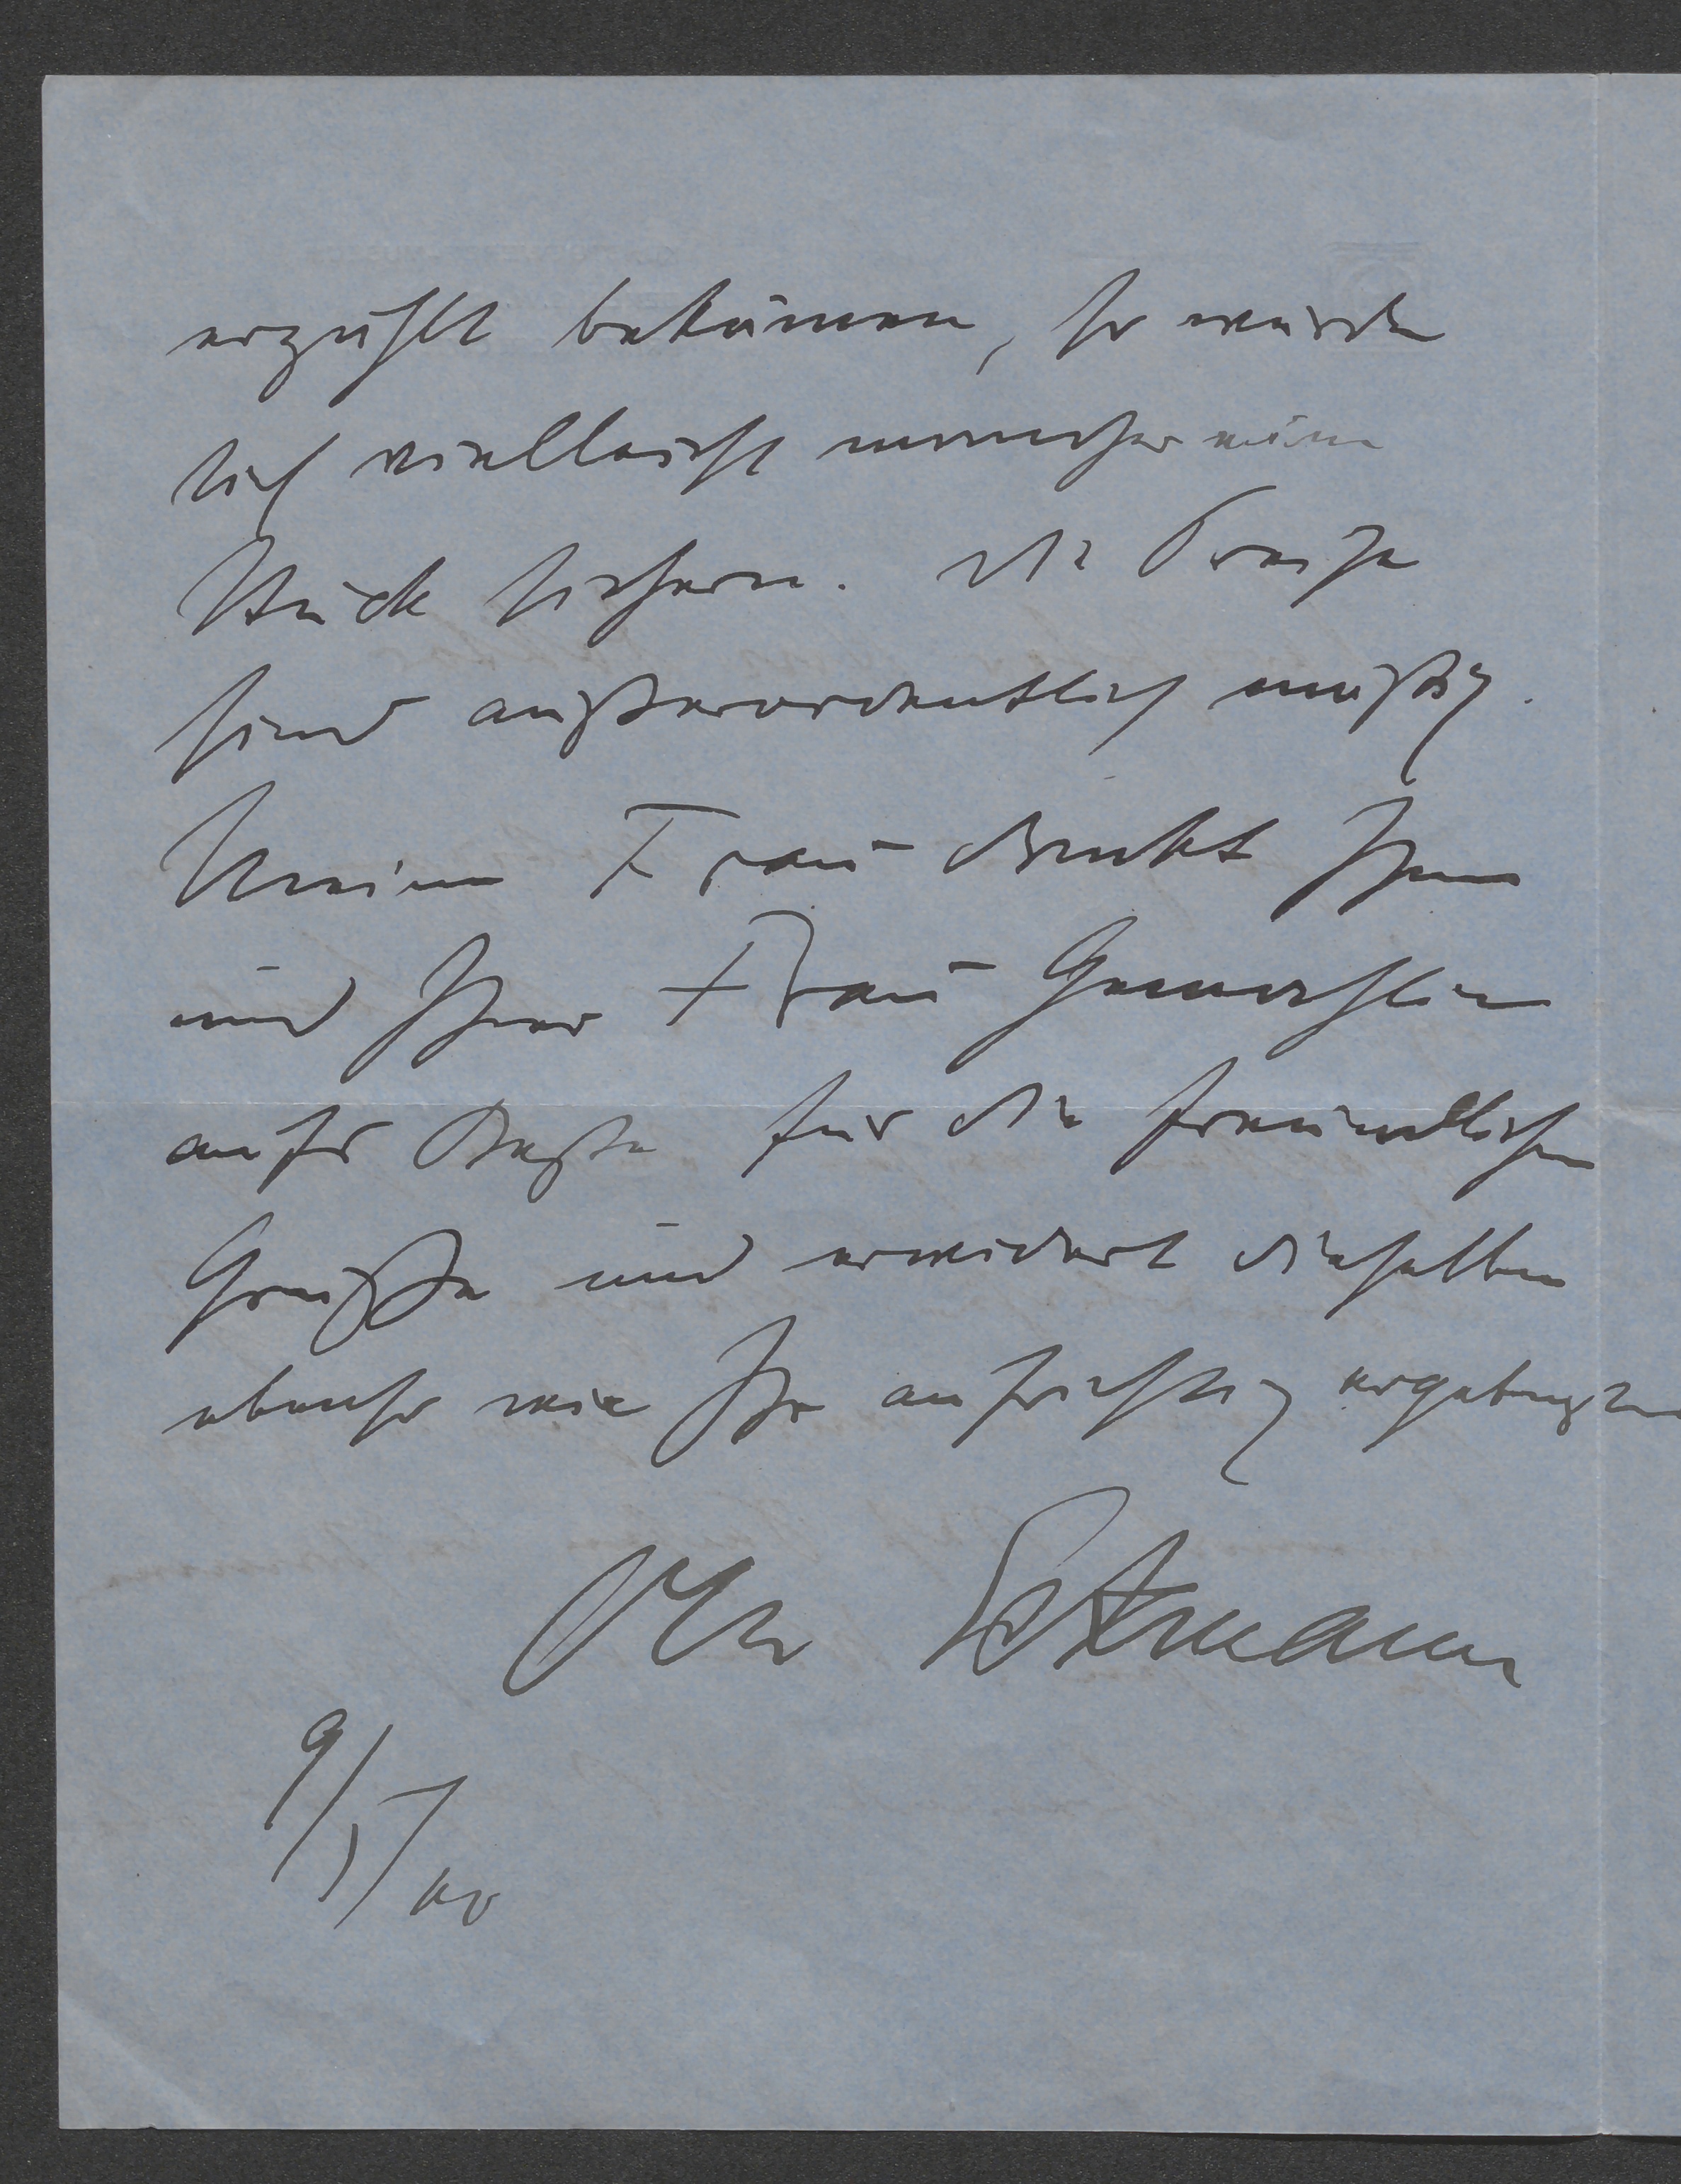 erzählt bekämen, so würde
sich vielleicht mancher eine
Stück sichern. Die Preise
sind außerordentlich mäßig.
Meine Frau dankt Ihnen
und Ihrer Frau Gemahlin
aufs Beste für die freundlichen
Grüße und erwidert dieselben
ebenso wie Ihr aufrichtig ergebenster
Otto
9/V